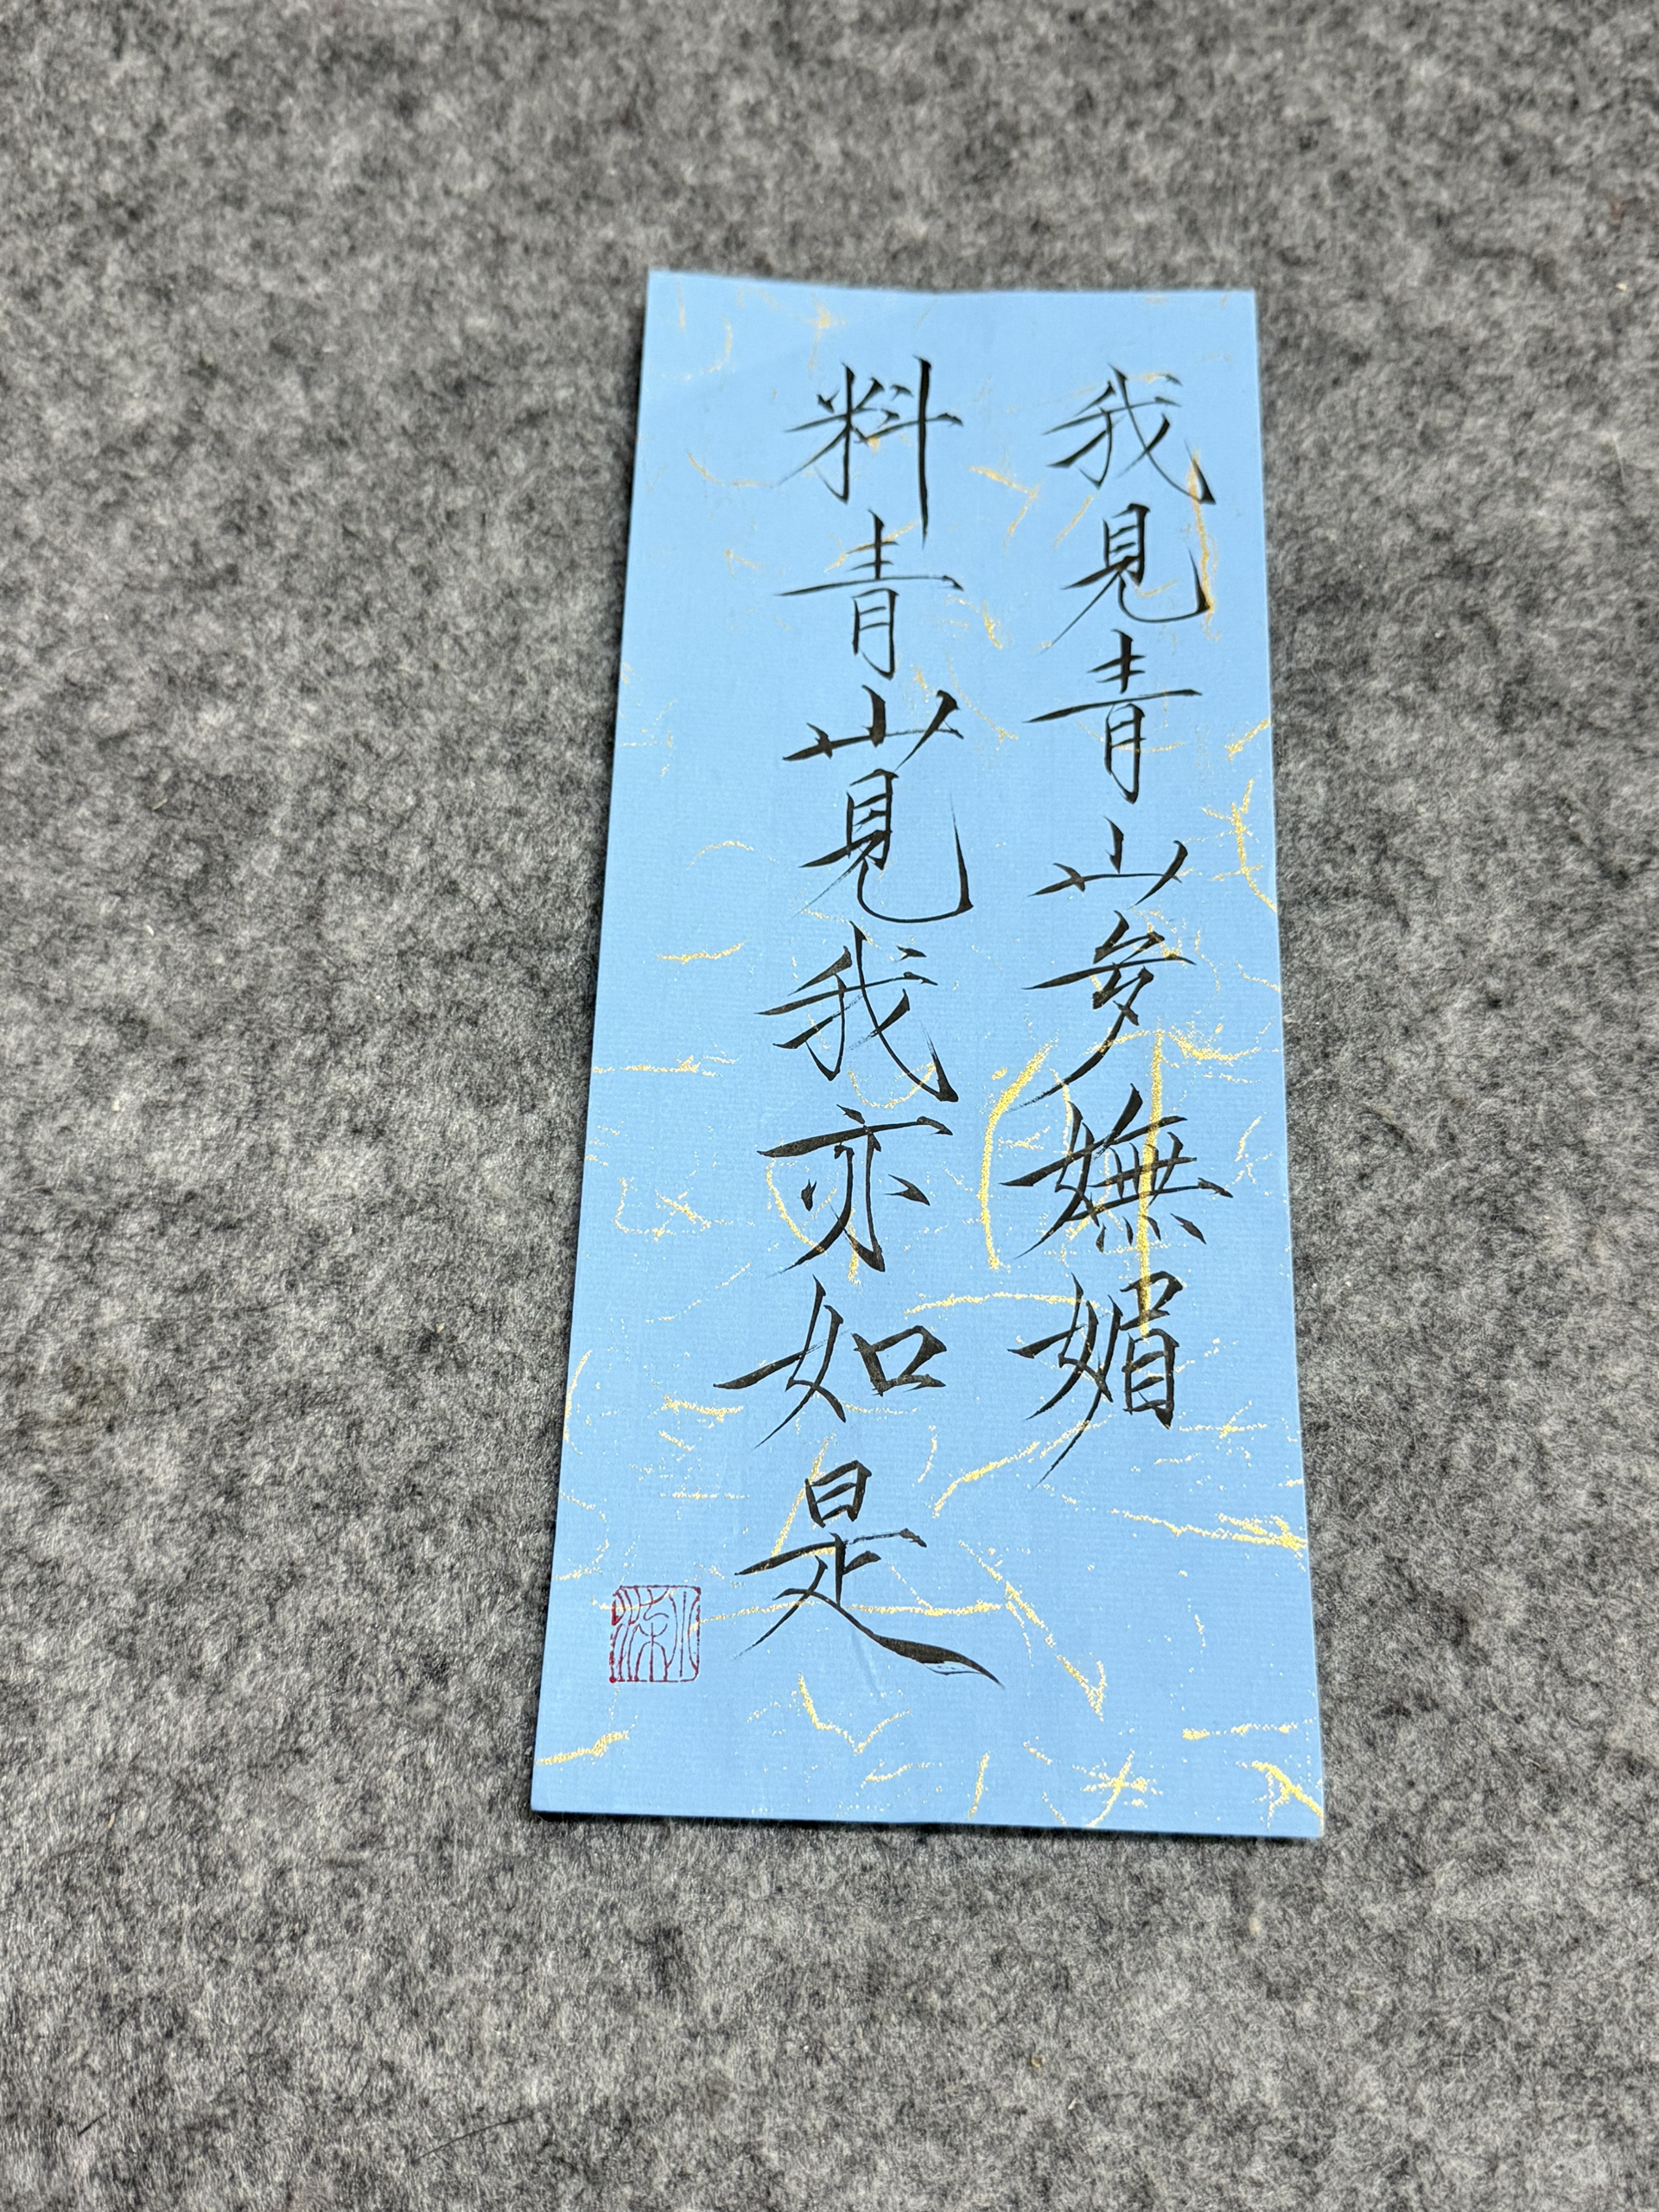 我見青山多嫵媚
料青山見我亦如是